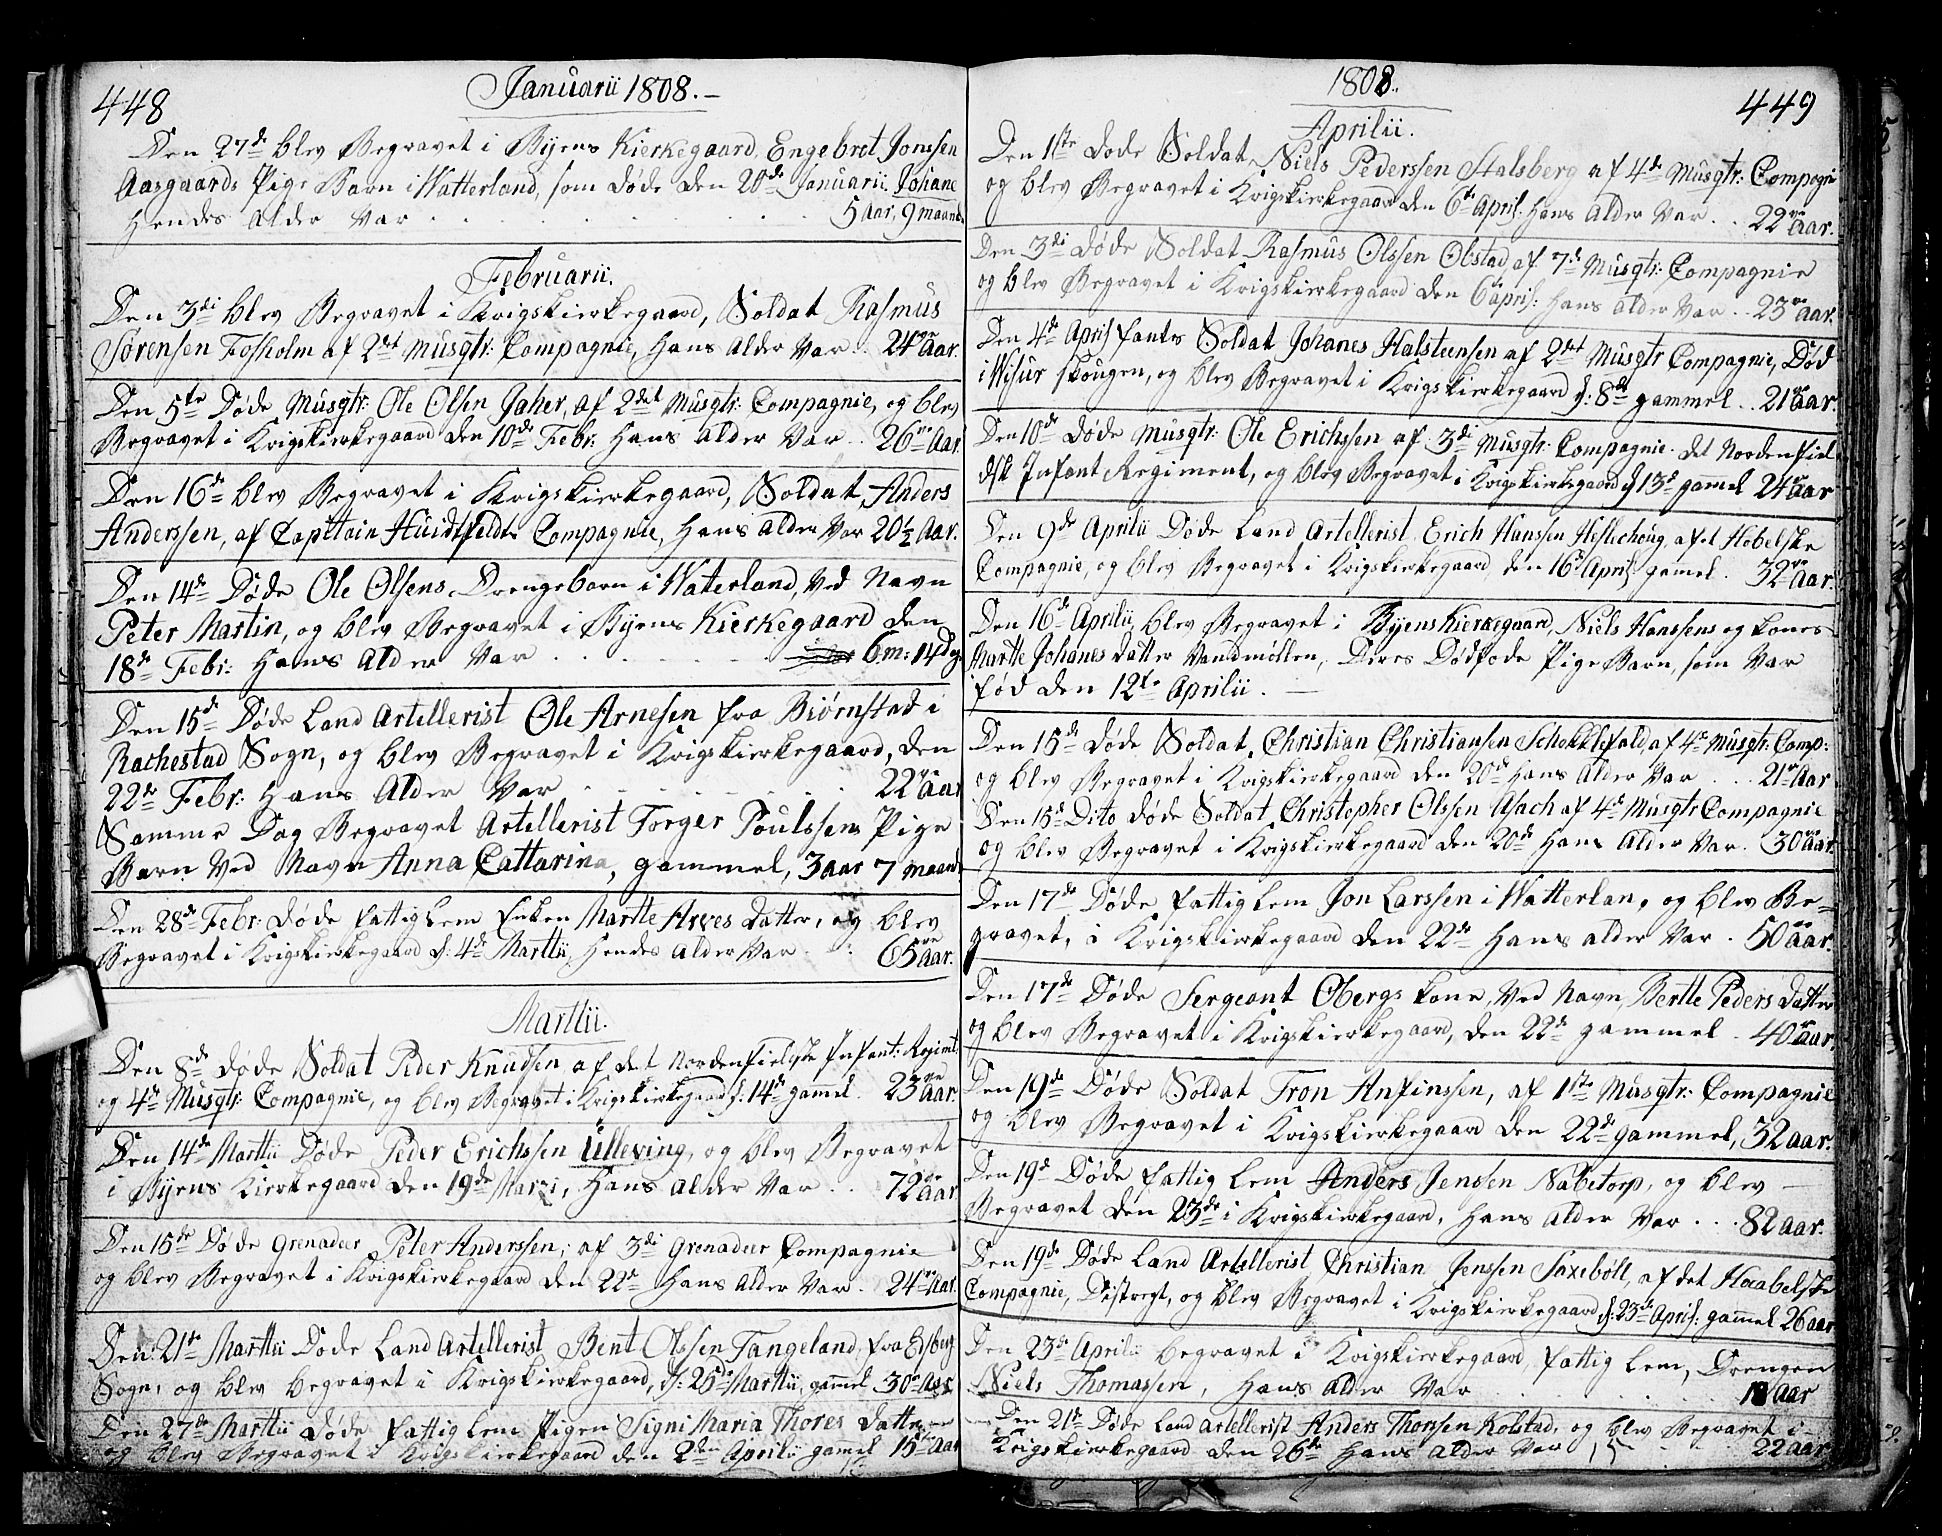 448
Januarii 1808.-
Den 27de blev Begravet i Byens Kierkegaard, Engebret Jonssen
Aasgaards Pige Barn i Watterland, som døde den 20de Januarii, Johane
Hendes Alder Var . . . . . . . 5 Aar, 9 maand
Februarii.
Den 3di blev Begravet i Krigskierkegaard, Soldat Rasmus
Sørensen Fosholm af 2det Musqtr: Compagnie, Hans Alder Var . 24re Aar.
Den 5te Døde Musqtr: Ole Olsen Jaher, af 2det Musqtr: Compagnie, og blev
Begravet i Krigskierkegaard den 10de Febr: Hans Alder Var . . 26re Aar
Den 16de blev Begravet i Krigskierkegaard, Soldat, Anders
Anderssen, af Capittain Huidtfeldts Compagnie, Hans Alder Var 20½ Aar.
Den 14de Døde Ole Olsens Drengebarn i Waterland, Ved Navn
Peter Martin, og blev Begravet i Byens Kierkegaard den
18de Febr: Hans Alder Var . . . . . 6 m: 14 Dage
Den 15de Døde Land Artellerist Ole Arnesen fra Biørnstad i
Rachestad Sogn, og blev Begravet i Krigskierkegaard, den
22de Febr: Hans Alder Var . . . . . . 22re Aar
Samme Dag Begravet Artellerist Torger Poulssens Pige
Barn Ved Navn Anna Cattarina, gammel, 3 aar 7 maand
Den 28de Febr: døde fattiglem Enken Martte Arves datter, og blev
Begravet i Krigskierkegaard d: 4de Marttii, Hendes Alder Var . : 65re Aar.
Marttii.
Den 8de døde Soldat Peder Knudsen af det Nordenfielske Infant: Regimt.
og 4de Musqtr: Compagnie, og blev Begravet i Krigskierkegaard d: 14de gamel . 23re Aar.
Den 14de Marttii Døde Peder Erichssen Ulleving, og blev Begravet
i Byens Kierkegaard den 19de Marzi, Hans Alder Var . . 72re Aar
Den 15de Døde Grenadeer Peter Anderssen, af 3di Grenadeer Compagnie
og blev Begravet i Krigskierkegaard den 22de Hans Alder Var . 24re Aar.
Den 21de Marttii Døde Land Artellerist, Bent Olssen Tangeland, fra Edsberg
Sogn, og blev begravet i Krigskierkegaard, d: 25de Marttii, gamel 30re Aar
Den 27de Marttii døde fattig lem Pigen Signi Maria Thores Datter
og blev Begravet i Krigskierkegaard den 2den Aprilii gamel 15 Aar
1808.
449
Aprilii.
Den 1ste døde Soldat, Niels Pederssen Stalsberg af 4de Musqtr: Compagnie
og blev Begravet i Krigskierkegaard den 6te April: Hans Alder Var . . 22re Aar.
Den 3di døde Soldat Rasmus Olssen Obstad, af 7de Musqtr: Compagnie
og blev Begravet i Krigskierkegaard den 6te April: Hans Alder Var . . 23re Aar.
Den 4de April fantes Soldat Johanes Halsteensen af 2det Musqtr Compagnie, Død
i Wisur skougen, og blev Begravet i Krigskierkegaard d: 8de gammel . . 21re Aar.
Den 10de døde Musqtr: Ole Erichssen af 3di Musqtr: Compagnie det Nordenfiel
dsk Infant Regiment, og blev Begravet i Krigskierkegaard d 13de gamel 24re Aar
Den 9de Aprilii Døde Land Artellerist, Erich Hanssen Heslechoug, af et Hobelske
Compagnie, og blev Begravet i Krigskierkegaard, den 16de April: gamel . 32re Aar.
Den 16de Aprilii, blev Begravet i Byens Kierkegaard, Niels Hanssens og kones
Martte Johanes datter Vandmøllen, Deres Dødfødde Pige Barn, som Var
fød den 12te Aprilii. -
Den 15de døde Soldat, Christian Christiansen Schoklefald, af 4de Musqtr: Comp:
og blev Begravet i Krigskierkegaard den 20de Hans Alder Var . . . 21re Aar
Den 15de Dito døde Soldat Christopher Olssen Asach af 4de Musqtr Compagnie
og blev Begravet i Krigskierkegaard den 20de Hans Alder Var . 30re Aar.
Den 17de Døde fattig lem Jon Larssen i Watterlan, og blev Be=
gravet, i Krigskierkegaard den 22de Hans Alder Var . 50re Aar.
Den 17de Døde Sergeant Obergs kone, Ved Navn, Bertte Peders datter
og blev Begravet i Krigskierkegaard, den 22de gammel . 40re Aar.
Den 19de Døde Soldat Tron Anfinssen, af 1ste Musqtr: Compagnie
og blev Begravet i Krigskierkegaard den 22de gammel, 32 aar.
Den 19de Døde fattig lem Anders Jenssen Nabetorp, og blev -
Begravet den 23de i Krigskierkegaard, Hans Alder Var . . . 82 aar.
Den 19de Døde Land Artellerist Christian Jenssen Saxeboll, af det Haabelske
Compagnie, Distregt, og blev Begravet i Krigskierkegaard d: 23de April: gammel 26 aar
Den 23de Aprilii begravet i Krigskierkegaard, fattig lem, Drengen
Niels Thomassen, Hans Alder Var . . . . Aar
Den 21de Døde Land Artellerist Anders Thorssen Kolstad, og blev Begravet i
Krigskierkegaard den 26de Hans Alder Var . . . 22 Aar.